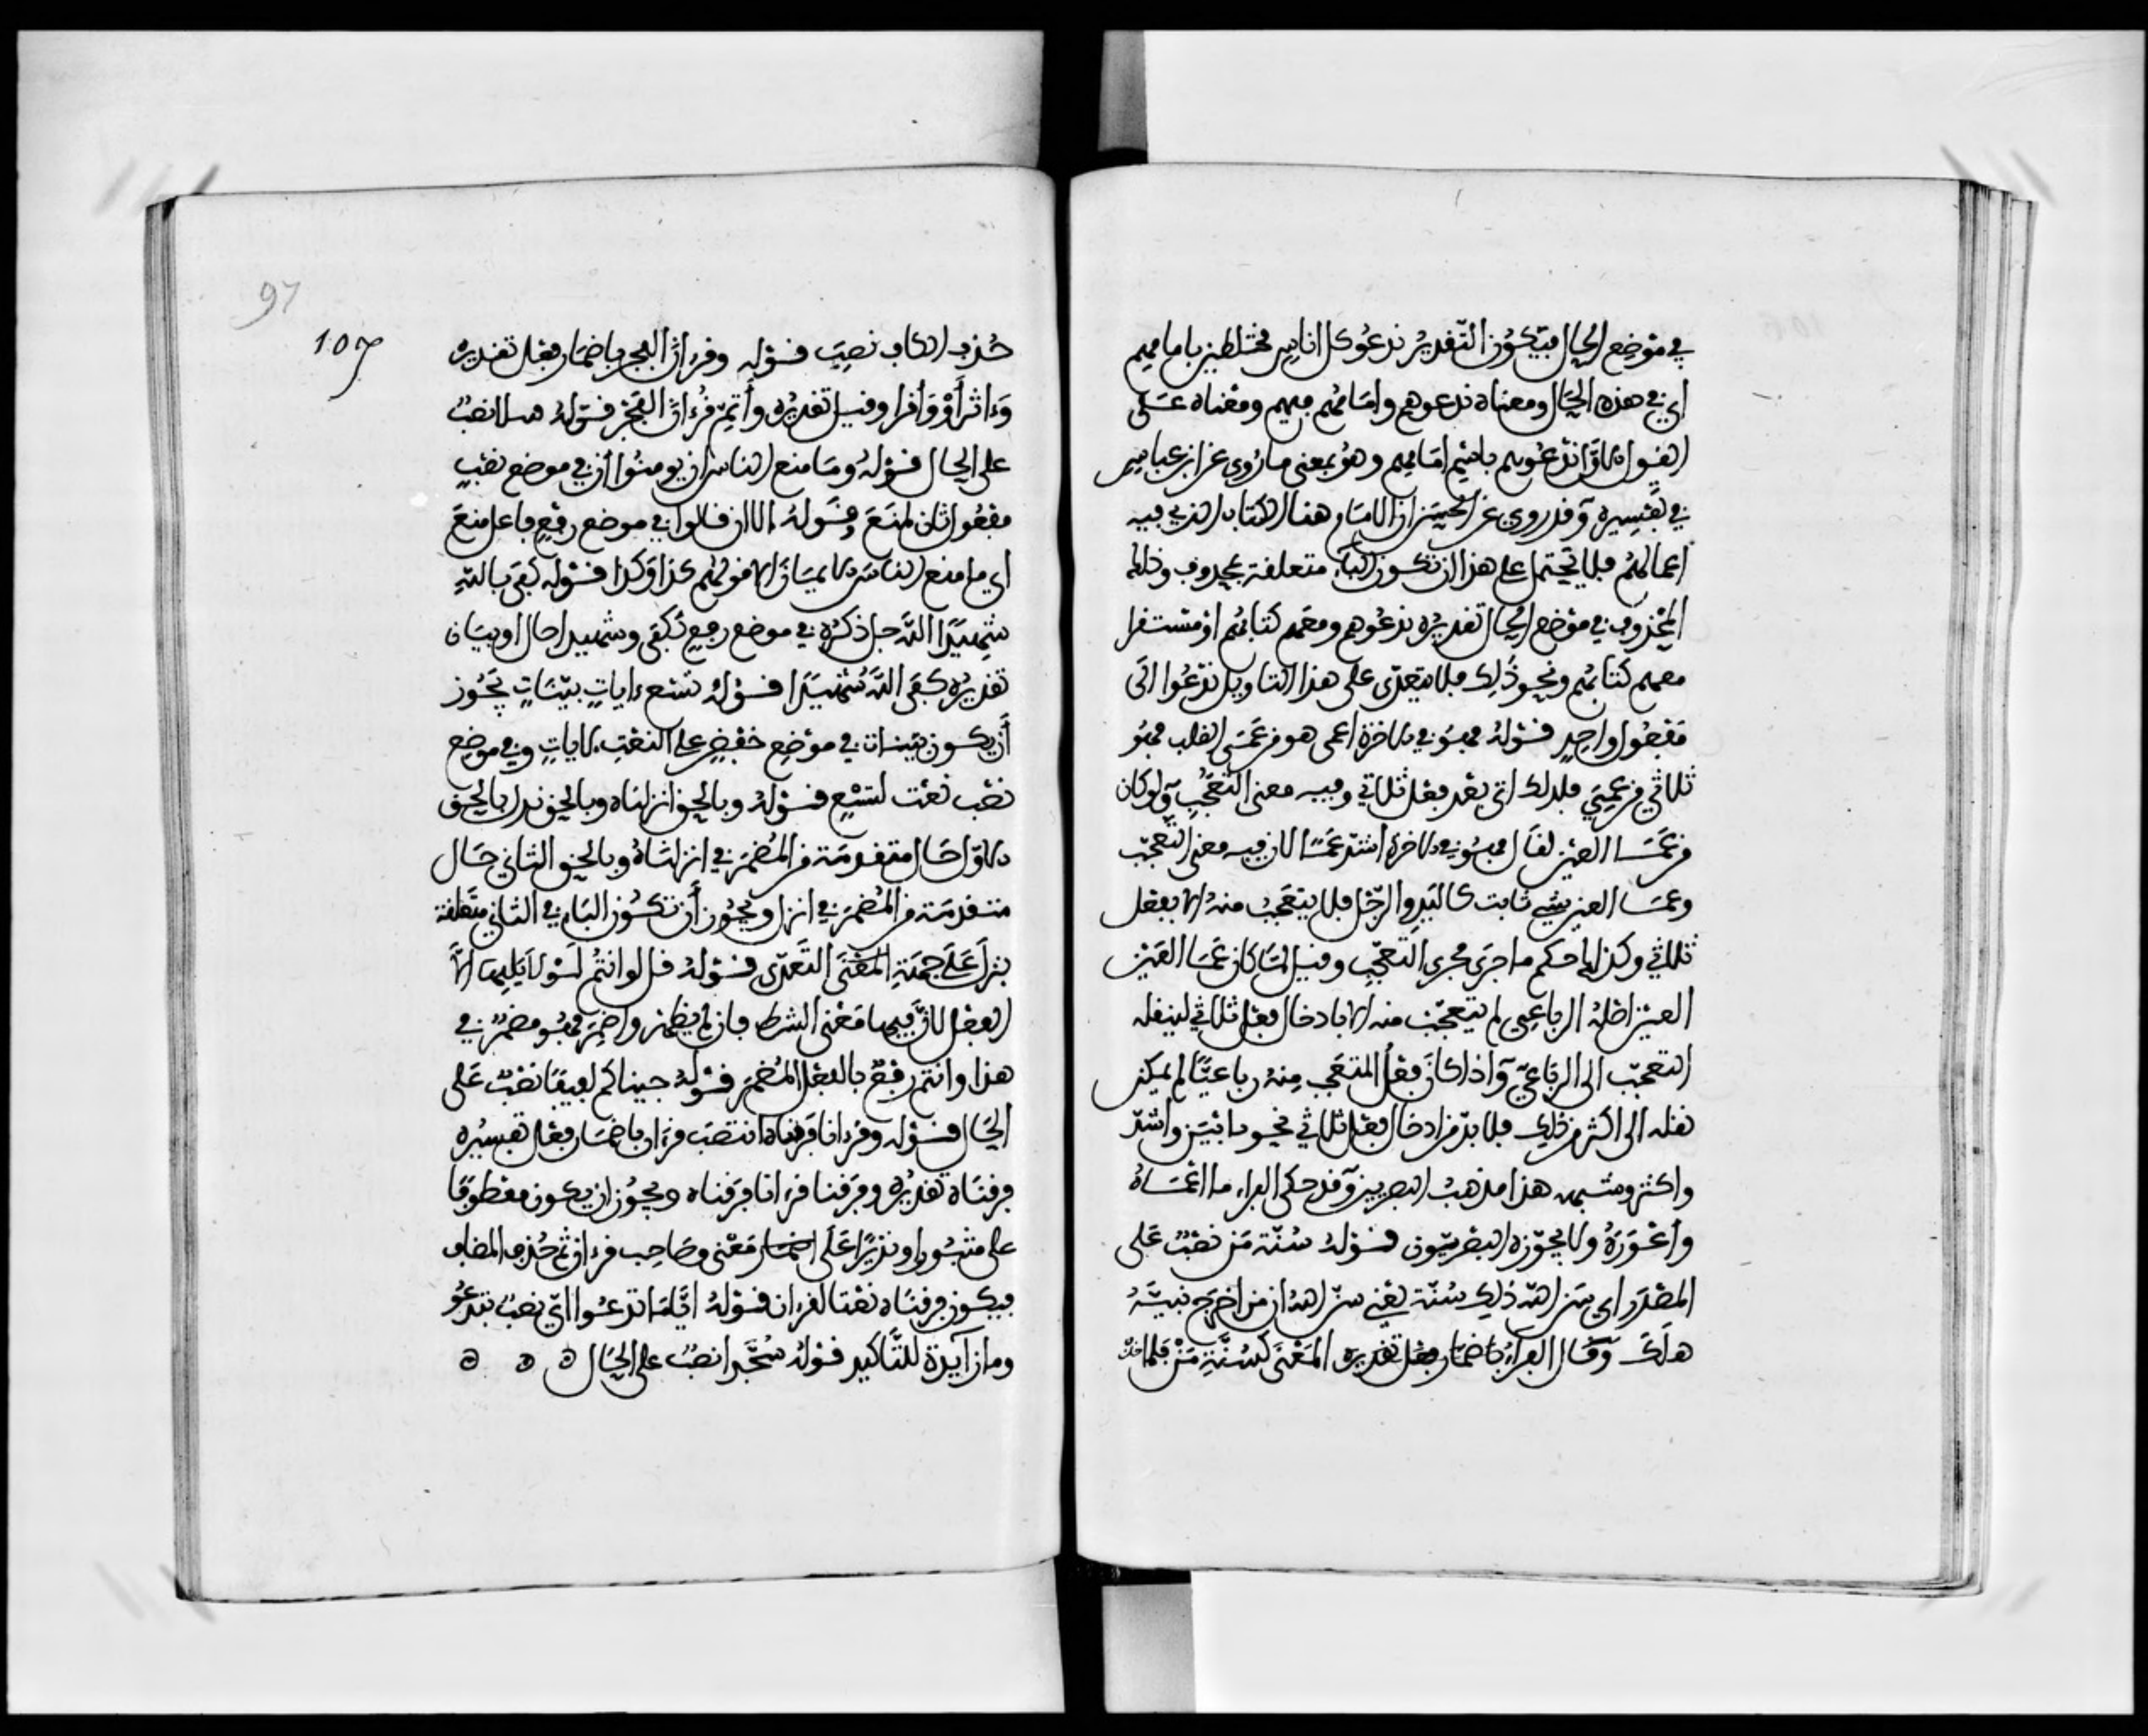 في موضع الحال فيكون التقدير ندعوا كل اناس مختلطين بامامهم
اي في هذه الحال ومعناه ندعوهم وامامهم فيهم ومعناه على
القول الاول ندعوهم باسم امامهم وهو بمعنى ما روي عن ابن عباس
في تفسيره وقد روي عن الحسن ان الامام هنا الكتاب الذي فيه
اعمالهم فلا يحتمل على هذا ان تكون الباء متعلقة بمحذوف وذلك
المحذوف في موضع الحال تقديره ندعوهم ومعهم كتابهم او مستقرا
معهم كتابهم ونحو ذلك فلا يتعدى على هذا التاويل ندعوا الى
مفعول واحد قوله فهو في الاخرة اعمى هو من عمى القلب فهو
ثلاثي من عمي فلذلك اتى بعد فعل ثلاثي وفيه معنى التعجب ولو كان
من عمى العين لقال فهو في الاخرة اشد عمى لان فيه معنى التعجب
وعمى العين شيء ثابت كاليد والرجل فلا يتعجب منه الا بفعل
ثلاثي وكذلك حكم ما جرى مجرى التعجب وقيل لما كان عمى العين
العين اصله الرباعي لم يتعجب منه الا بادخال فعل ثلاثي لينقله
التعجب الى الرباعي واذا كان فعل المتعجب منه رباعيا لم يمكن
نقله الى اكثر من ذلك فلا بد من ادخال فعل ثلاثي نحو ابين واشد
واكثر وشبهه هذا مذهب البصريين وقد حكى الفراء ما اعماه
واعوره ولا يجوزه البصريون قوله سنة من نصب على
المصدر اي سن الله ذلك سنة يعني سن الله ان من اخرج نبيه
هلك وقال الفراء باضمار فعل تقديره المعنى كسنة من فلما
97
107
حذف الكاف نصب قوله وقران الفجر باضمار فعل تقديره
وءاثر او واقرا وقيل تقديره واتم قران الفجر قوله مسلا نصب
على الحال قوله وما منع الناس ان يومنوا ان في موضع نصب
مفعول ثان لمنع وقوله الا ان قالوا في موضع رفع فاعل منع
اي ما منع الناس الايمان الا قولهم كذا وكذا قوله كفى بالله
شهيدا الله جل ذكره في موضع رفع بكفى وشهيدا حال او بيان
تقديره كفى الله شهيدا قوله تسع ءايات بينات يجوز
ان يكون بينات في موضع خفض على النعت لايات وفي موضع
نصب نعت لتسع قوله وبالحق انزلناه وبالحق نزل بالحق
الاول حال متقدمة من المضمر في انزلناه وبالحق الثاني حال
متقدمة من المضمر في انزل ويجوز ان تكون الباء في الثاني متعلقة
بنزل على جهة المعنى التعدى قوله قل لو انتم لو لا يليها الا
الفعل لان فيها معنى الشرط فان لم يظهر واضمر فهو مضمر في
هذا وانتم رفع بالفعل المضمر قوله جينا بكم لفيفا نصب على
الحال قوله وقرانا فرقناه انتصب قران باضمار فعل تفسيره
فرقناه تقديره وفرقنا قرءانا فرقناه ويجوز ان يكون معطوفا
على مبشرا ونذيرا على معنى وصاحب قرءان ثم حذف المضاف
فيكون فرقناه نعتا لقران قوله اياما تدعوا اي نصب بتدعو
وما زايدة للتاكيد قوله سجدا نصب على الحال